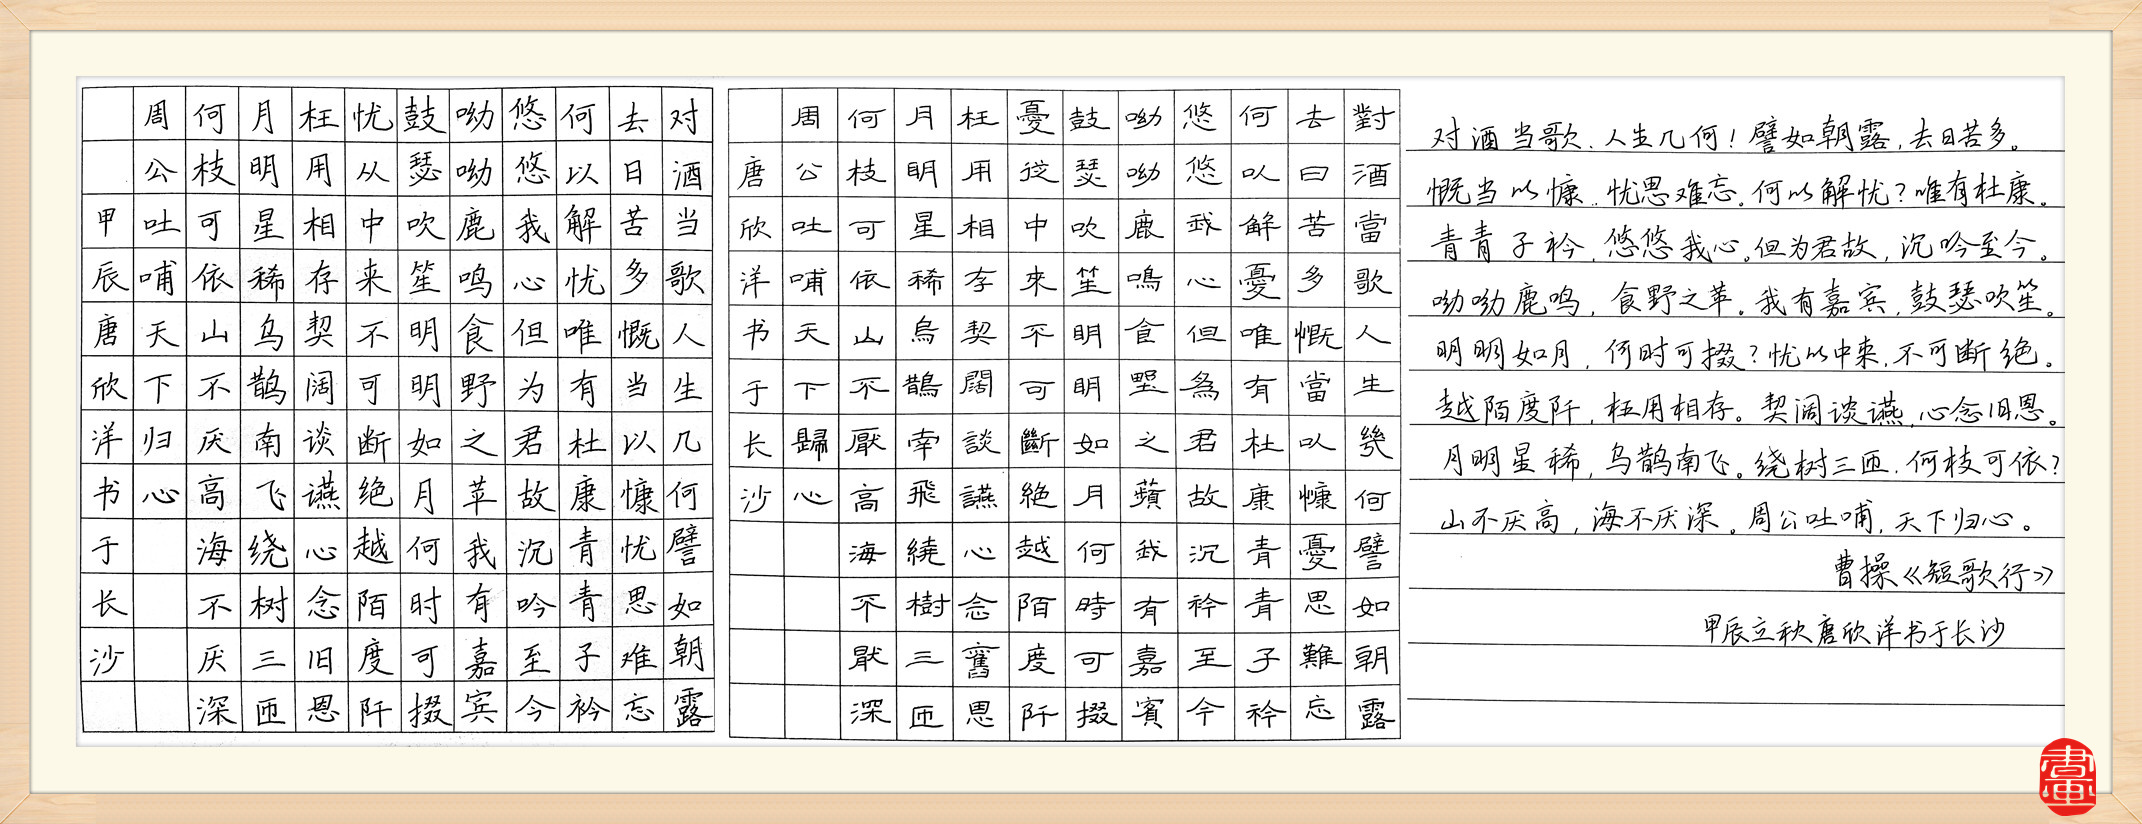 对酒当歌人生几何譬如朝露
去日苦多慨当以慷忧思难忘
何以解忧唯有杜康青青子衿
悠悠我心但为君故沉吟至今
呦呦鹿鸣食野之苹我有嘉宾
鼓瑟吹笙明明如月何时可掇
忧从中来不可断绝越陌度阡
枉用相存契阔谈讌心念旧恩
月明星稀乌鹊南飞绕树三匝
何枝可依山不厌高海不厌深
周公吐哺天下归心
甲辰唐欣洋书于长沙
對酒當歌人生幾何譬如朝露
去日苦多慨當以慷憂思難忘
何以解憂唯有杜康青青子衿
悠悠我心但為君故沉吟至今
呦呦鹿鳴食野之蘋我有嘉賓
鼓瑟吹笙明明如月何時可掇
憂從中來不可斷絕越陌度阡
枉用相存契闊談讌心念舊恩
月明星稀烏鵲南飛繞樹三匝
何枝可依山不厭高海不厭深
周公吐哺天下歸心
唐欣洋书于长沙
对酒当歌、人生几何！譬如朝露，去日苦多。
慨当以慷，忧思难忘。何以解忧？唯有杜康。
青青子衿，悠悠我心。但为君故，沉吟至今。
呦呦鹿鸣，食野之苹。我有嘉宾，鼓瑟吹笙。
明明如月，何时可掇？忧以中来，不可断绝。
越陌度阡，枉用相存。契阔谈讌，心念旧恩。
月明星稀，乌鹊南飞。绕树三匝，何枝可依？
山不厌高，海不厌深。周公吐哺，天下归心。
曹操《短歌行》
甲辰立秋唐欣洋书于长沙